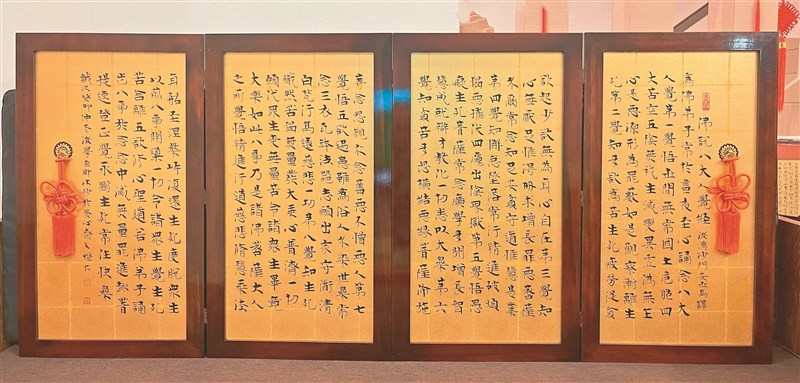 佛說八大人覺經 後漢沙門安世高譯
為佛弟子常於晝夜至心誦念八大
人覺第一覺悟世間無常國土危脆四
大苦空五陰無我生滅變異虛偽無主
心是惡源形為罪藪如是觀察漸離生
死第二覺知多欲為苦生死疲勞從貪
欲起少欲無為身心自在第三覺知
心無厭足惟得多求增長罪惡菩薩
不爾常念知足安貧守道惟慧是業
第四覺知懈怠墜落常行精進破煩
惱惡摧伏四魔出陰界獄第五覺悟愚
癡生死菩薩常念廣學多聞增長智
慧成就辯才教化一切悉以大樂第六
覺知貧苦多怨橫結惡緣菩薩布施
等念怨親不念舊惡不憎惡人第七
覺悟五欲過患雖為俗人不染世樂常
念三衣瓦缽法器志願出家守道清
白梵行高遠慈悲一切第八覺知生死
熾然苦惱無量發大乘心普濟一切
願代眾生受無量苦令諸眾生畢竟
大樂如此八事乃是諸佛菩薩大人
之所覺悟精進行道慈悲修慧乘法
身船至涅槃岸復還生死度脫眾生
以前八事開導一切令諸眾生覺生死
苦捨離五欲修心聖道若佛弟子誦
此八事於念念中滅無量罪進趣菩
提速登正覺永斷生死常住快樂